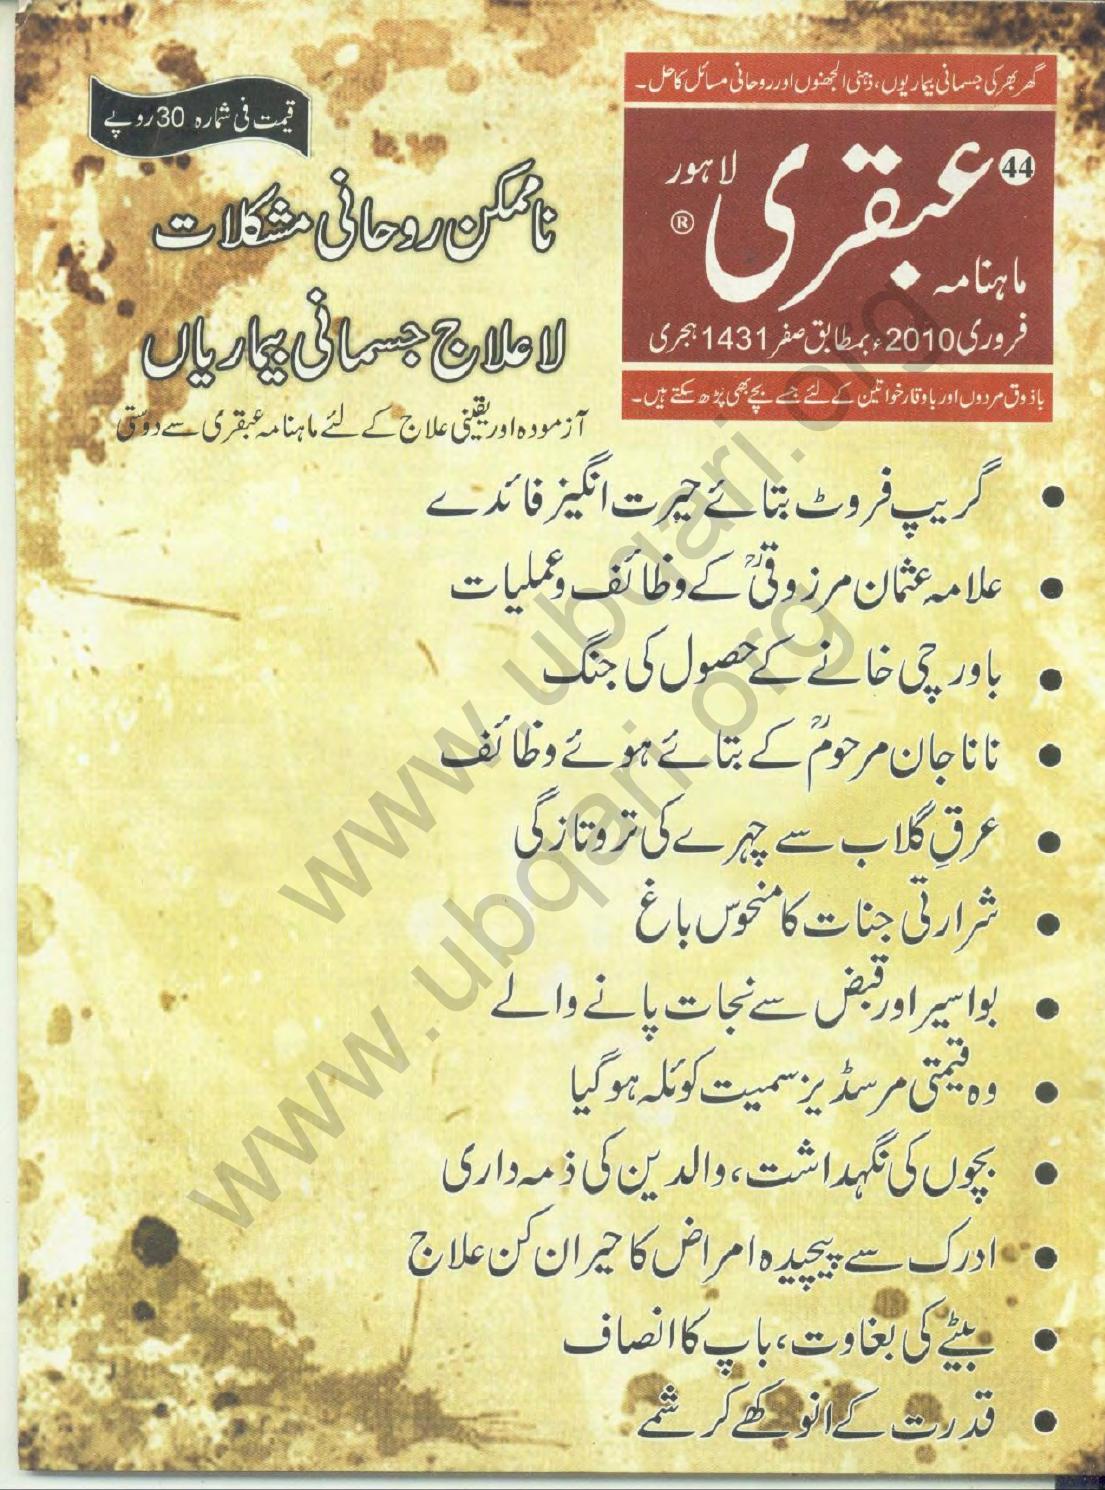 گھر بھر کی جسمانی بیماریوں، ذہنی الجھنوں اور روحانی مسائل کا حل۔
44
عبقری لاہور ®
ماہنامہ
فروری 2010ء بمطابق صفر 1431 ہجری
باذوق مردوں اور باوقار خواتین کے لئے جسے بچے بھی پڑھ سکتے ہیں۔
قیمت فی شمارہ 30 روپے
ناممکن روحانی مشکلات
لاعلاج جسمانی بیماریاں
آزمودہ اور یقینی علاج کے لئے ماہنامہ عبقری سے دوستی
• گریپ فروٹ بتائے حیرت انگیز فائدے
• علامہ عثمان مرزوقیؒ کے وظائف و عملیات
• باورچی خانے کے حصول کی جنگ
• نانا جان مرحومؒ کے بتائے ہوئے وظائف
• عرقِ گلاب سے چہرے کی تروتازگی
• شرارتی جنات کا منحوس باغ
• بواسیر اور قبض سے نجات پانے والے
• وہ قیمتی مرسڈیز سمیت کوئلہ ہوگیا
• بچوں کی نگہداشت، والدین کی ذمہ داری
• ادرک سے پیچیدہ امراض کا حیران کن علاج
• بیٹے کی بغاوت، باپ کا انصاف
• قدرت کے انوکھے کرشمے
www.ubqari.org
www.ubqari.org